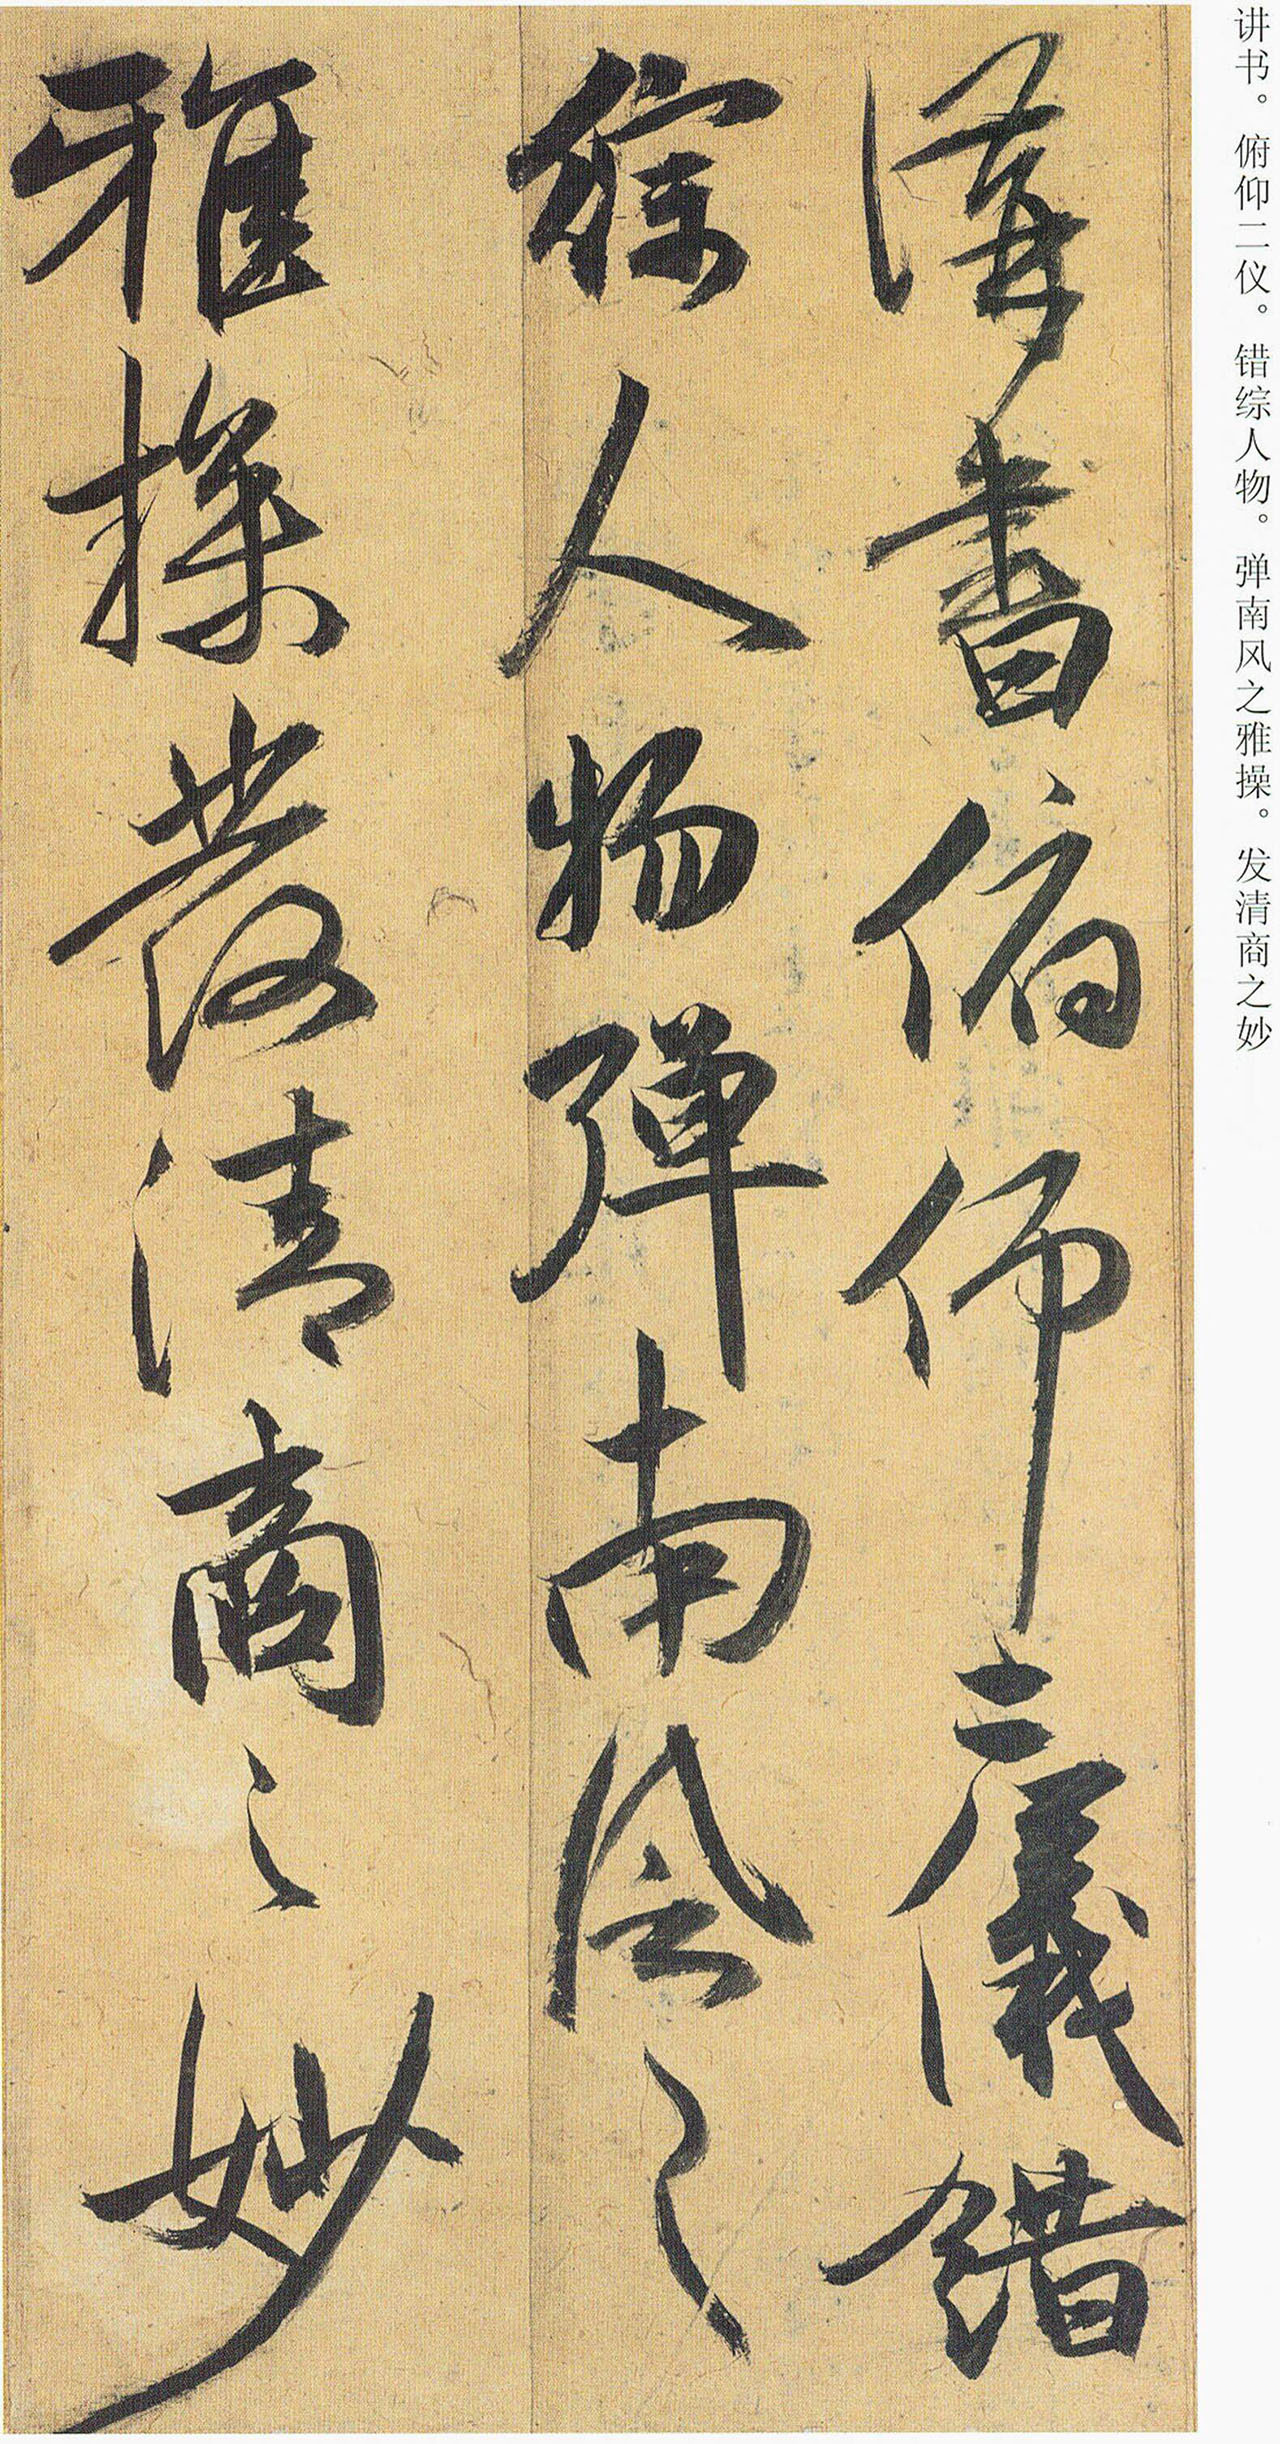 讲书。俯仰二仪。错综人物。弹南风之雅操。发清商之妙
講書俯仰二儀錯
綜人物彈南風之
雅操發清商之妙